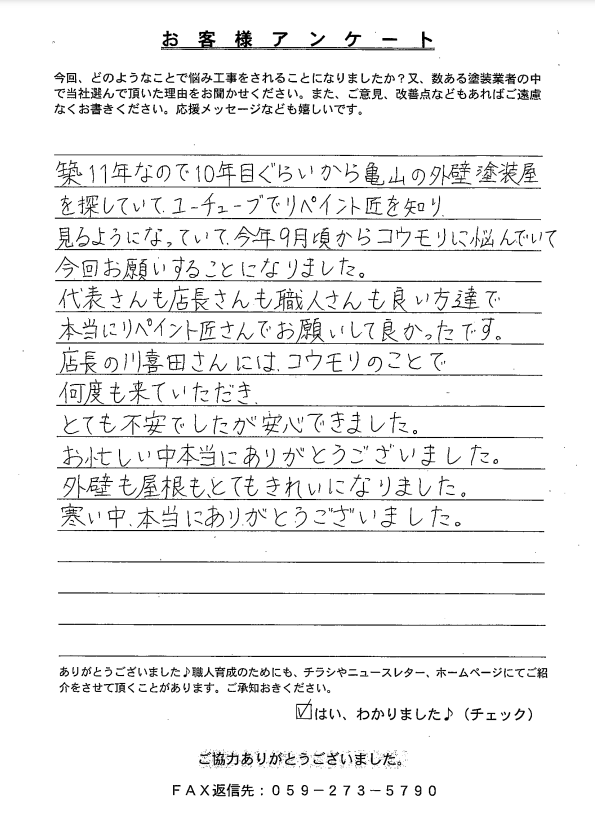 お客様アンケート
今回、どのようなことで悩み工事をされることになりましたか？又、数ある塗装業者の中
で当社選んで頂いた理由をお聞かせください。また、ご意見、改善点などもあればご遠慮
なくお書きください。応援メッセージなども嬉しいです。
築11年なので10年目ぐらいから亀山の外壁塗装屋
を探していて、ユーチューブでリペイント匠を知り、
見るようになっていて、今年9月頃からコウモリに悩んでいて
今回お願いすることになりました。
代表さんも店長さんも職人さんも良い方達で
本当にリペイント匠さんでお願いして良かったです。
店長の川喜田さんには、コウモリのことで
何度も来ていただき、
とても不安でしたが安心できました。
お忙しい中本当にありがとうございました。
外壁も屋根も、とてもきれいになりました。
寒い中、本当にありがとうございました。
ありがとうございました♪職人育成のためにも、チラシやニュースレター、ホームページにてご紹
介をさせて頂くことがあります。ご承知おきください。
☑はい、わかりました♪（チェック）
ご協力ありがとうございました。
ＦＡＸ返信先：０５９－２７３－５７９０